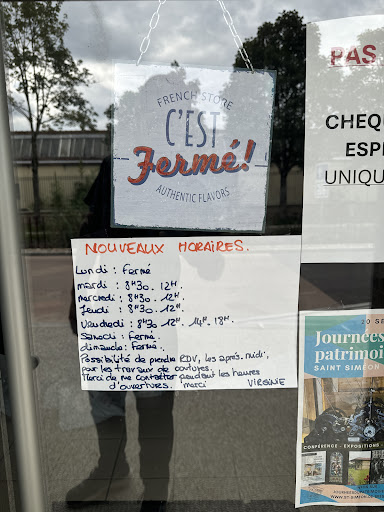 FRENCH STORE
C'EST
Fermé!
AUTHENTIC FLAVORS
PAS
CHEQ
ESP
UNIQU
NOUVEAUX HORAIRES.
Lundi : Fermé
mardi : 8H30. 12H.
mercredi : 8H30. 12H.
Jeudi : 8H30. 12H
Vendredi : 8H30 12H. 14H. 18H.
Samedi : Fermé.
dimanche : Fermé.
Possibilité de prendre RDV, les après.midi,
par les travaux de coutures.
Merci de me contacter pendant les heures
d'ouvertures. merci VIRGINIE
20 SE
Journées
patrimoi
SAINT SIMÉON
CONFÉRENCE - EXPOSITIONS